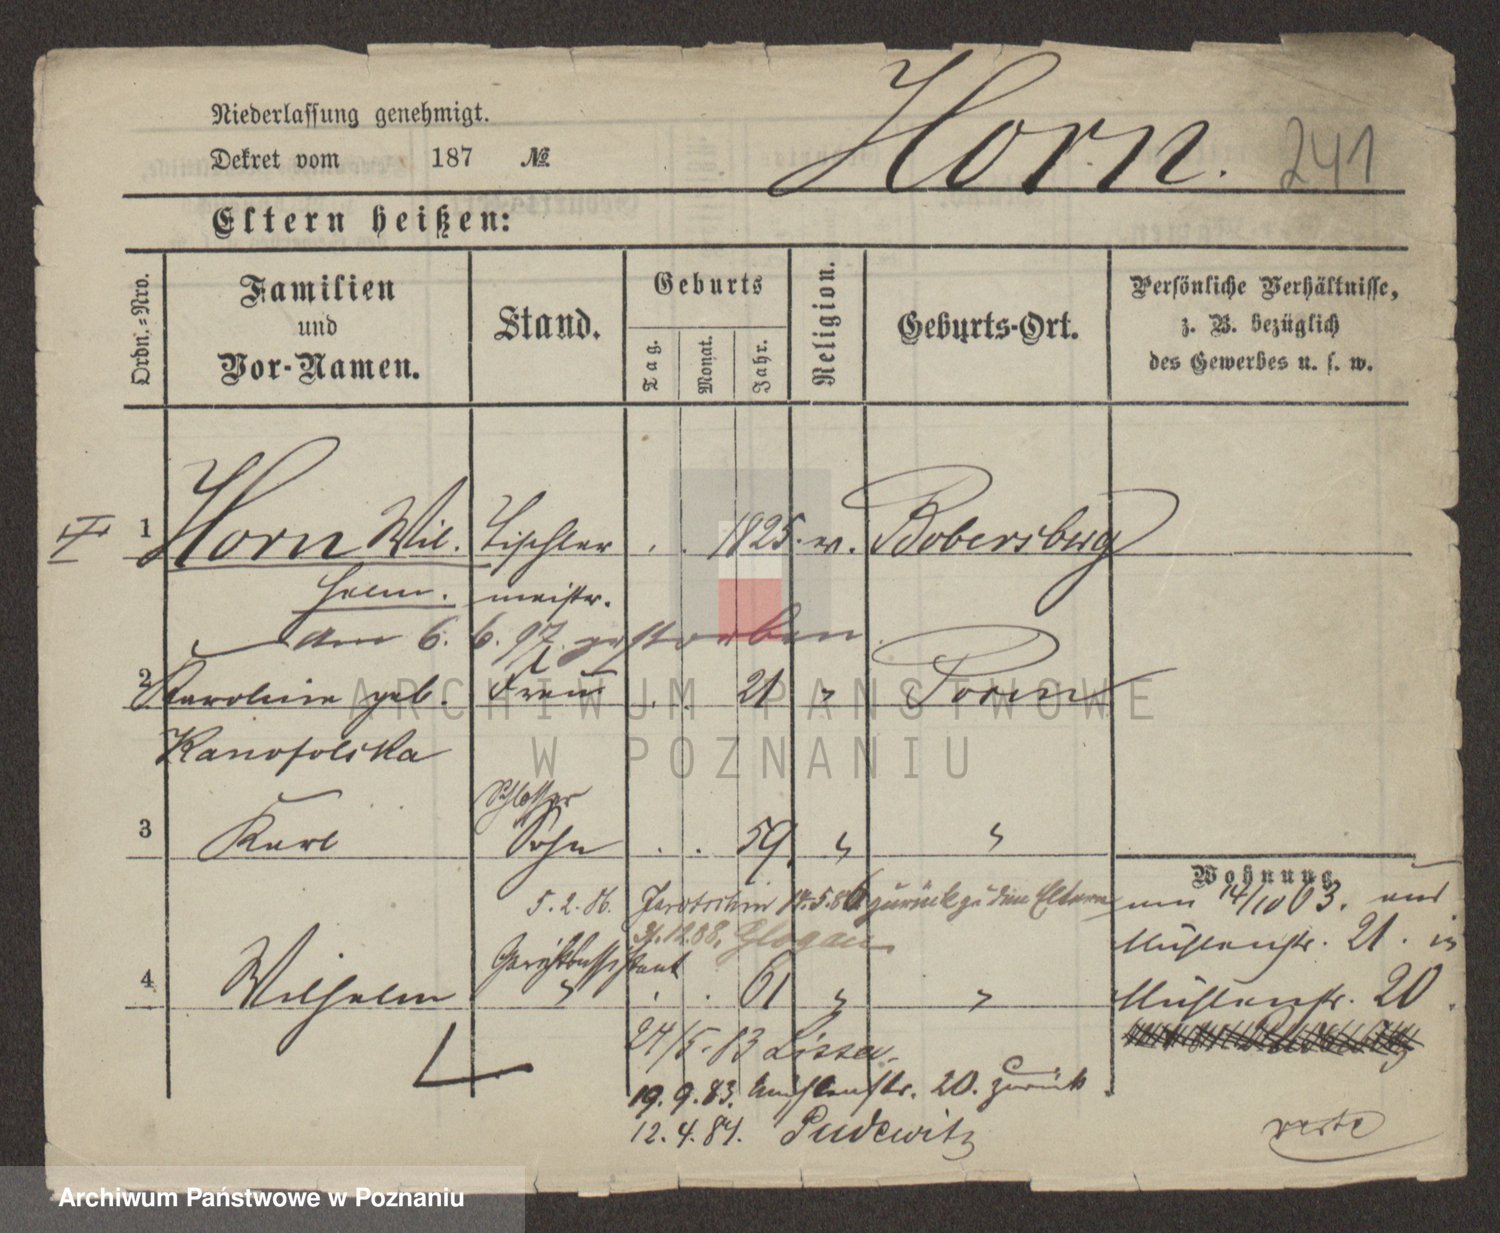 Niederlassung genehmigt.
Dekret vom 187 №
Horn.
241
Eltern heißen:
Ordn.-Nro.
Familien
und
Vor-Namen.
Stand.
Geburts
Tag.
Monat.
Jahr.
Religion.
Geburts-Ort.
Persönliche Verhältnisse,
z. B. bezüglich
des Gewerbes u. s. w.
1 Horn Wil. Tischler . . 1825. ev. Bobersberg
helm. meistr.
am 6. 6. 97. gestorben
2 Karoline geb. Frau . . 21 " Posen
Kanofolska
Schlosser
3 Karl Sohn . . 59. " "
Wohnung.
5. 2. 86. Jarotschin 14.5.86 zurück zu den Eltern
um 14/10 03. aus
12.88. Glogau
Mühlenstr. 21. in
Gerichtsassistent
4 Wilhelm " . . 61 " "
Mühlenstr. 20.
24/5. 83 Lissa.
19. 9. 83. Mühlenstr. 20. zurück
12. 4. 84. Pudewitz
verte
ARCHIWUM PAŃSTWOWE
W POZNANIU
Archiwum Państwowe w Poznaniu